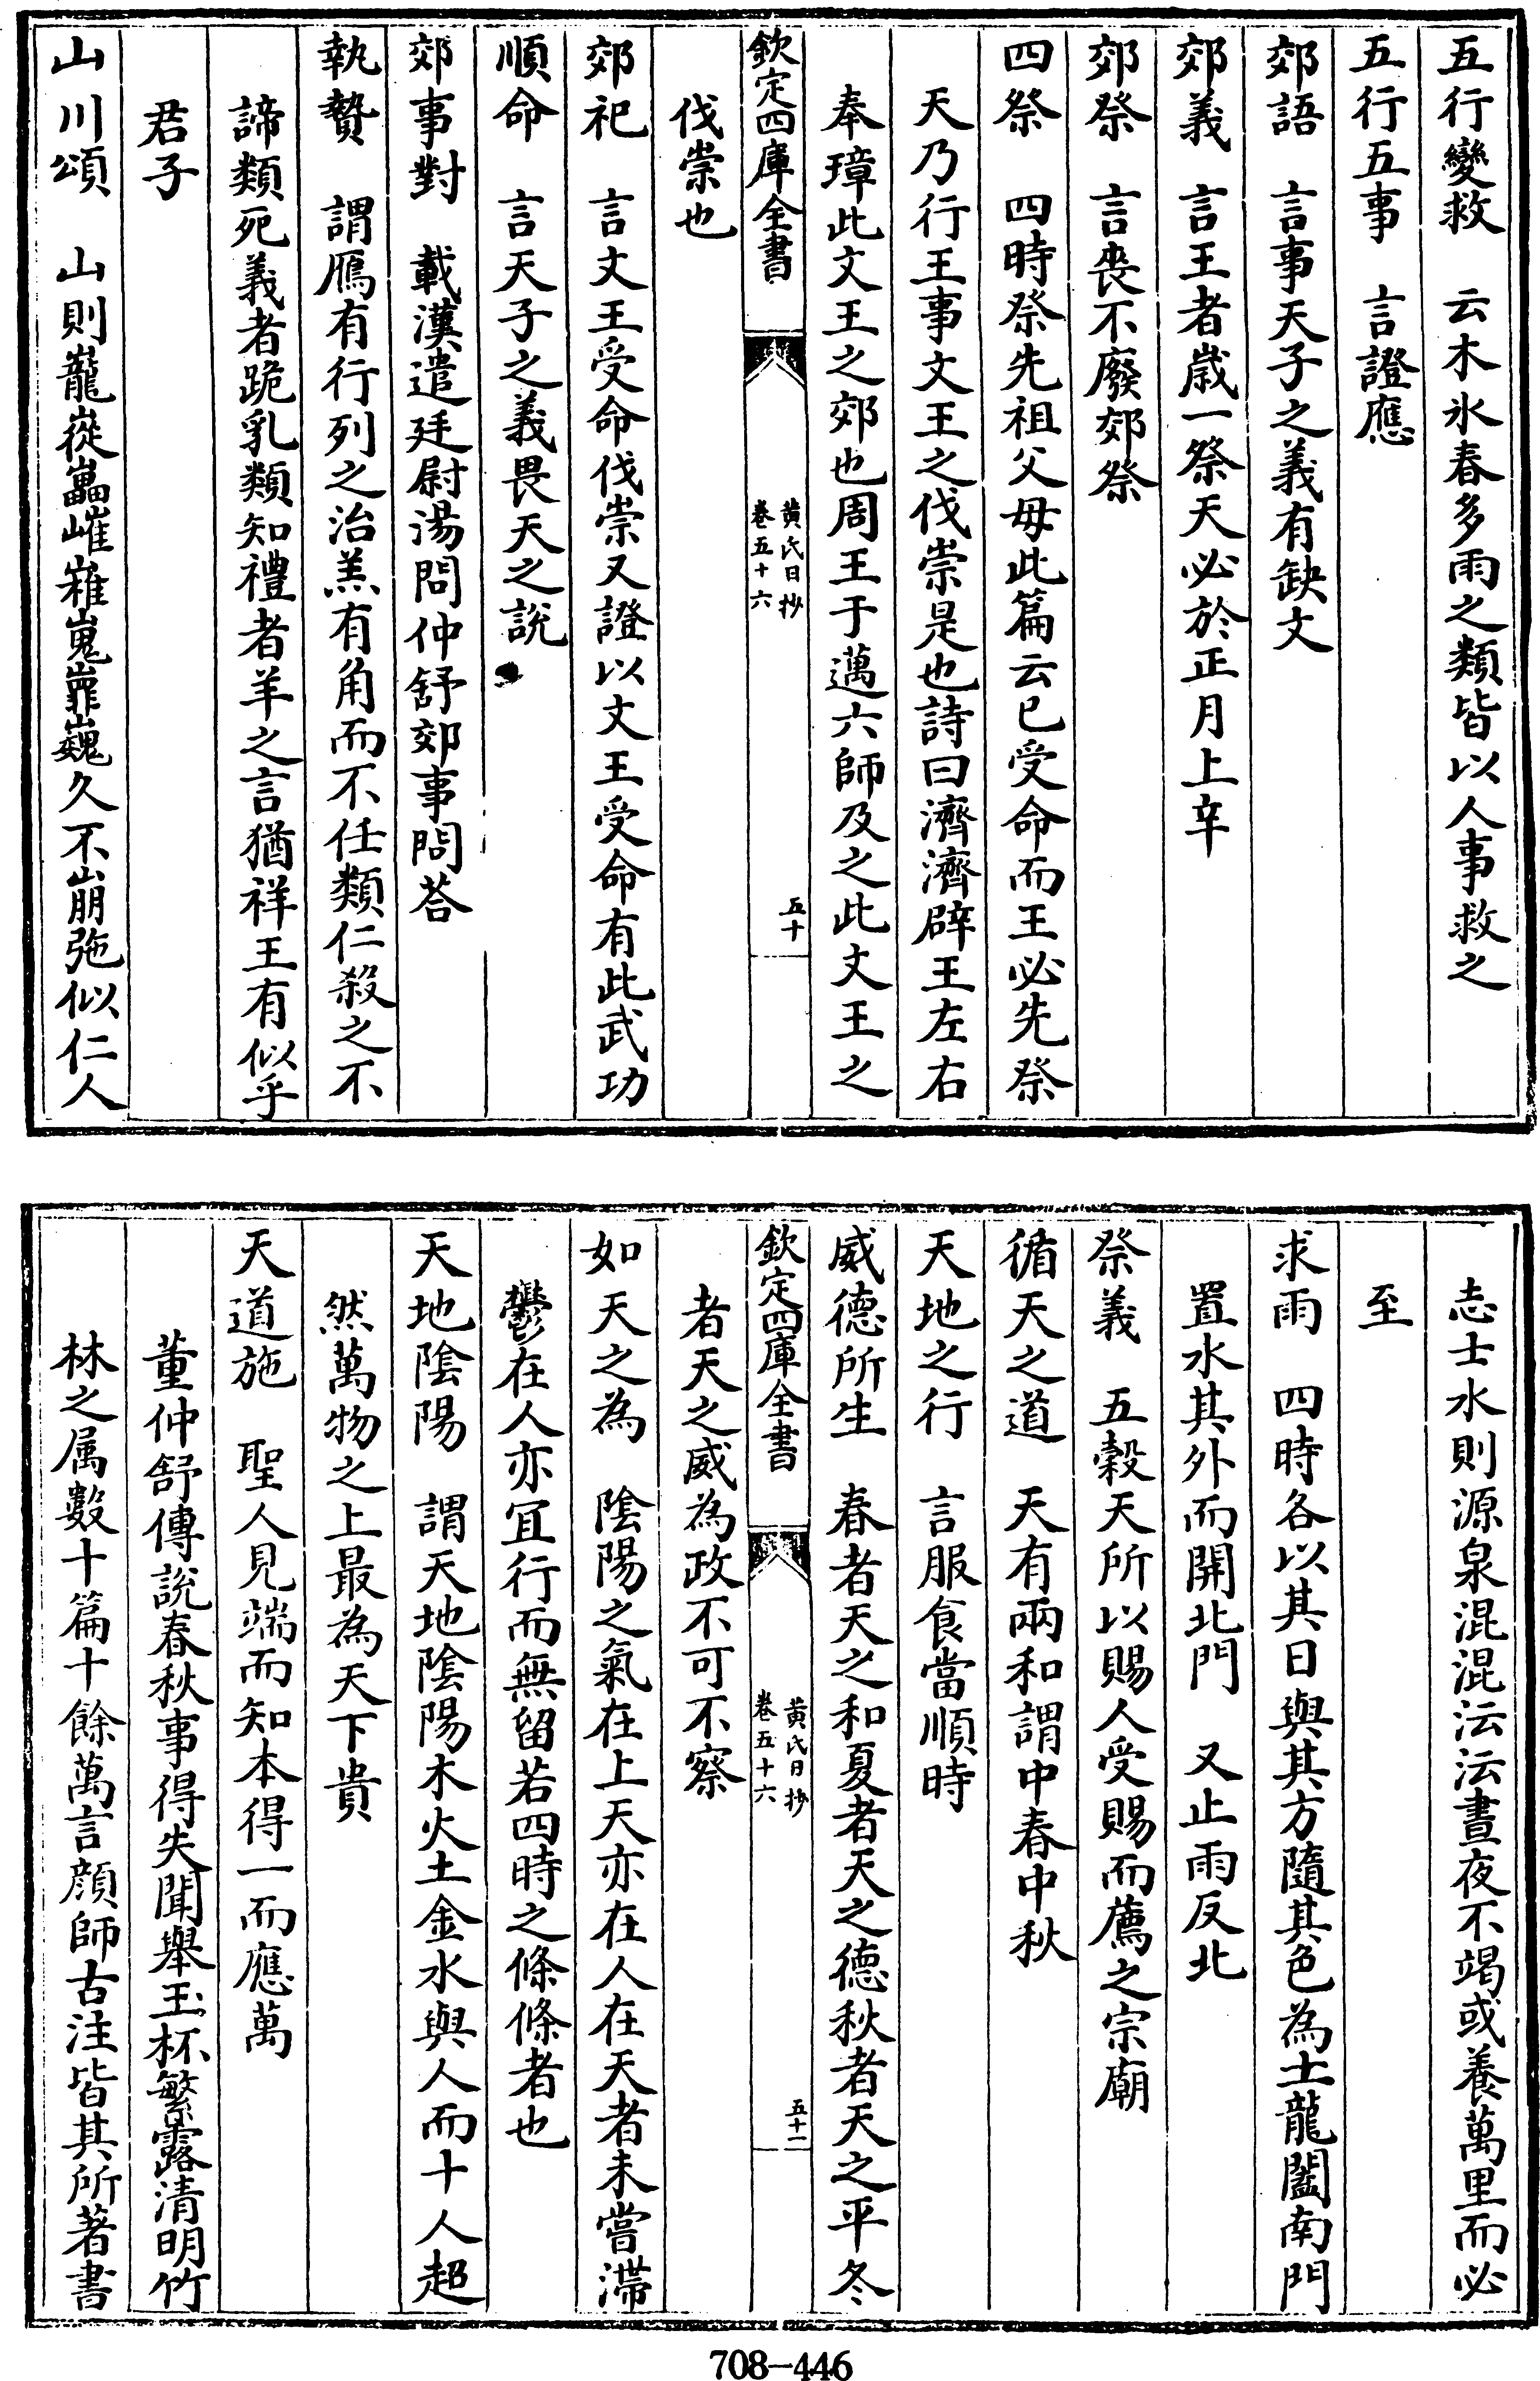 五行變救　云木氷春多雨之類皆以人事救之
五行五事　言證應
郊語　言事天子之義有缺文
郊義　言王者歳一祭天必於正月上辛
郊祭　言喪不廢郊祭
四祭　四時祭先祖父母此篇云已受命而王必先祭
天乃行王事文王之伐崇是也詩曰濟濟辟王左右
奉璋此文王之郊也周王于邁六師及之此文王之
欽定四庫全書
黄氏日抄
卷五十六
五十
伐崇也
郊祀　言文王受命伐崇又證以文王受命有此武功
順命　言天子之義畏天之說
郊事對　載漢遣廷尉湯問仲舒郊事問荅
執贄　謂鴈有行列之治羔有角而不任類仁殺之不
諦類死義者跪乳類知禮者羊之言猶祥王有似乎
君子
山川頌　山則巃嵷巋嶉嵬嶵巍久不崩弛似仁人
志士水則源泉混混沄沄晝夜不竭或養萬里而必
至
求雨　四時各以其日與其方隨其色為土龍闔南門
置水其外而開北門　又止雨反北
祭義　五穀天所以賜人受賜而薦之宗廟
循天之道　天有兩和謂中春中秋
天地之行　言服食當順時
威德所生　春者天之和夏者天之德秋者天之平冬
欽定四庫全書
黄氏日抄
卷五十六
五十一
者天之威為政不可不察
如天之為　陰陽之氣在上天亦在人在天者未嘗滯
鬱在人亦宜行而無留若四時之條條者也
天地陰陽　謂天地陰陽木火土金水與人而十人超
然萬物之上最為天下貴
天道施　聖人見端而知本得一而應萬
董仲舒傳說春秋事得失聞舉玉杯繁露清明竹
林之属數十篇十餘萬言顔師古注皆其所著書
708-446